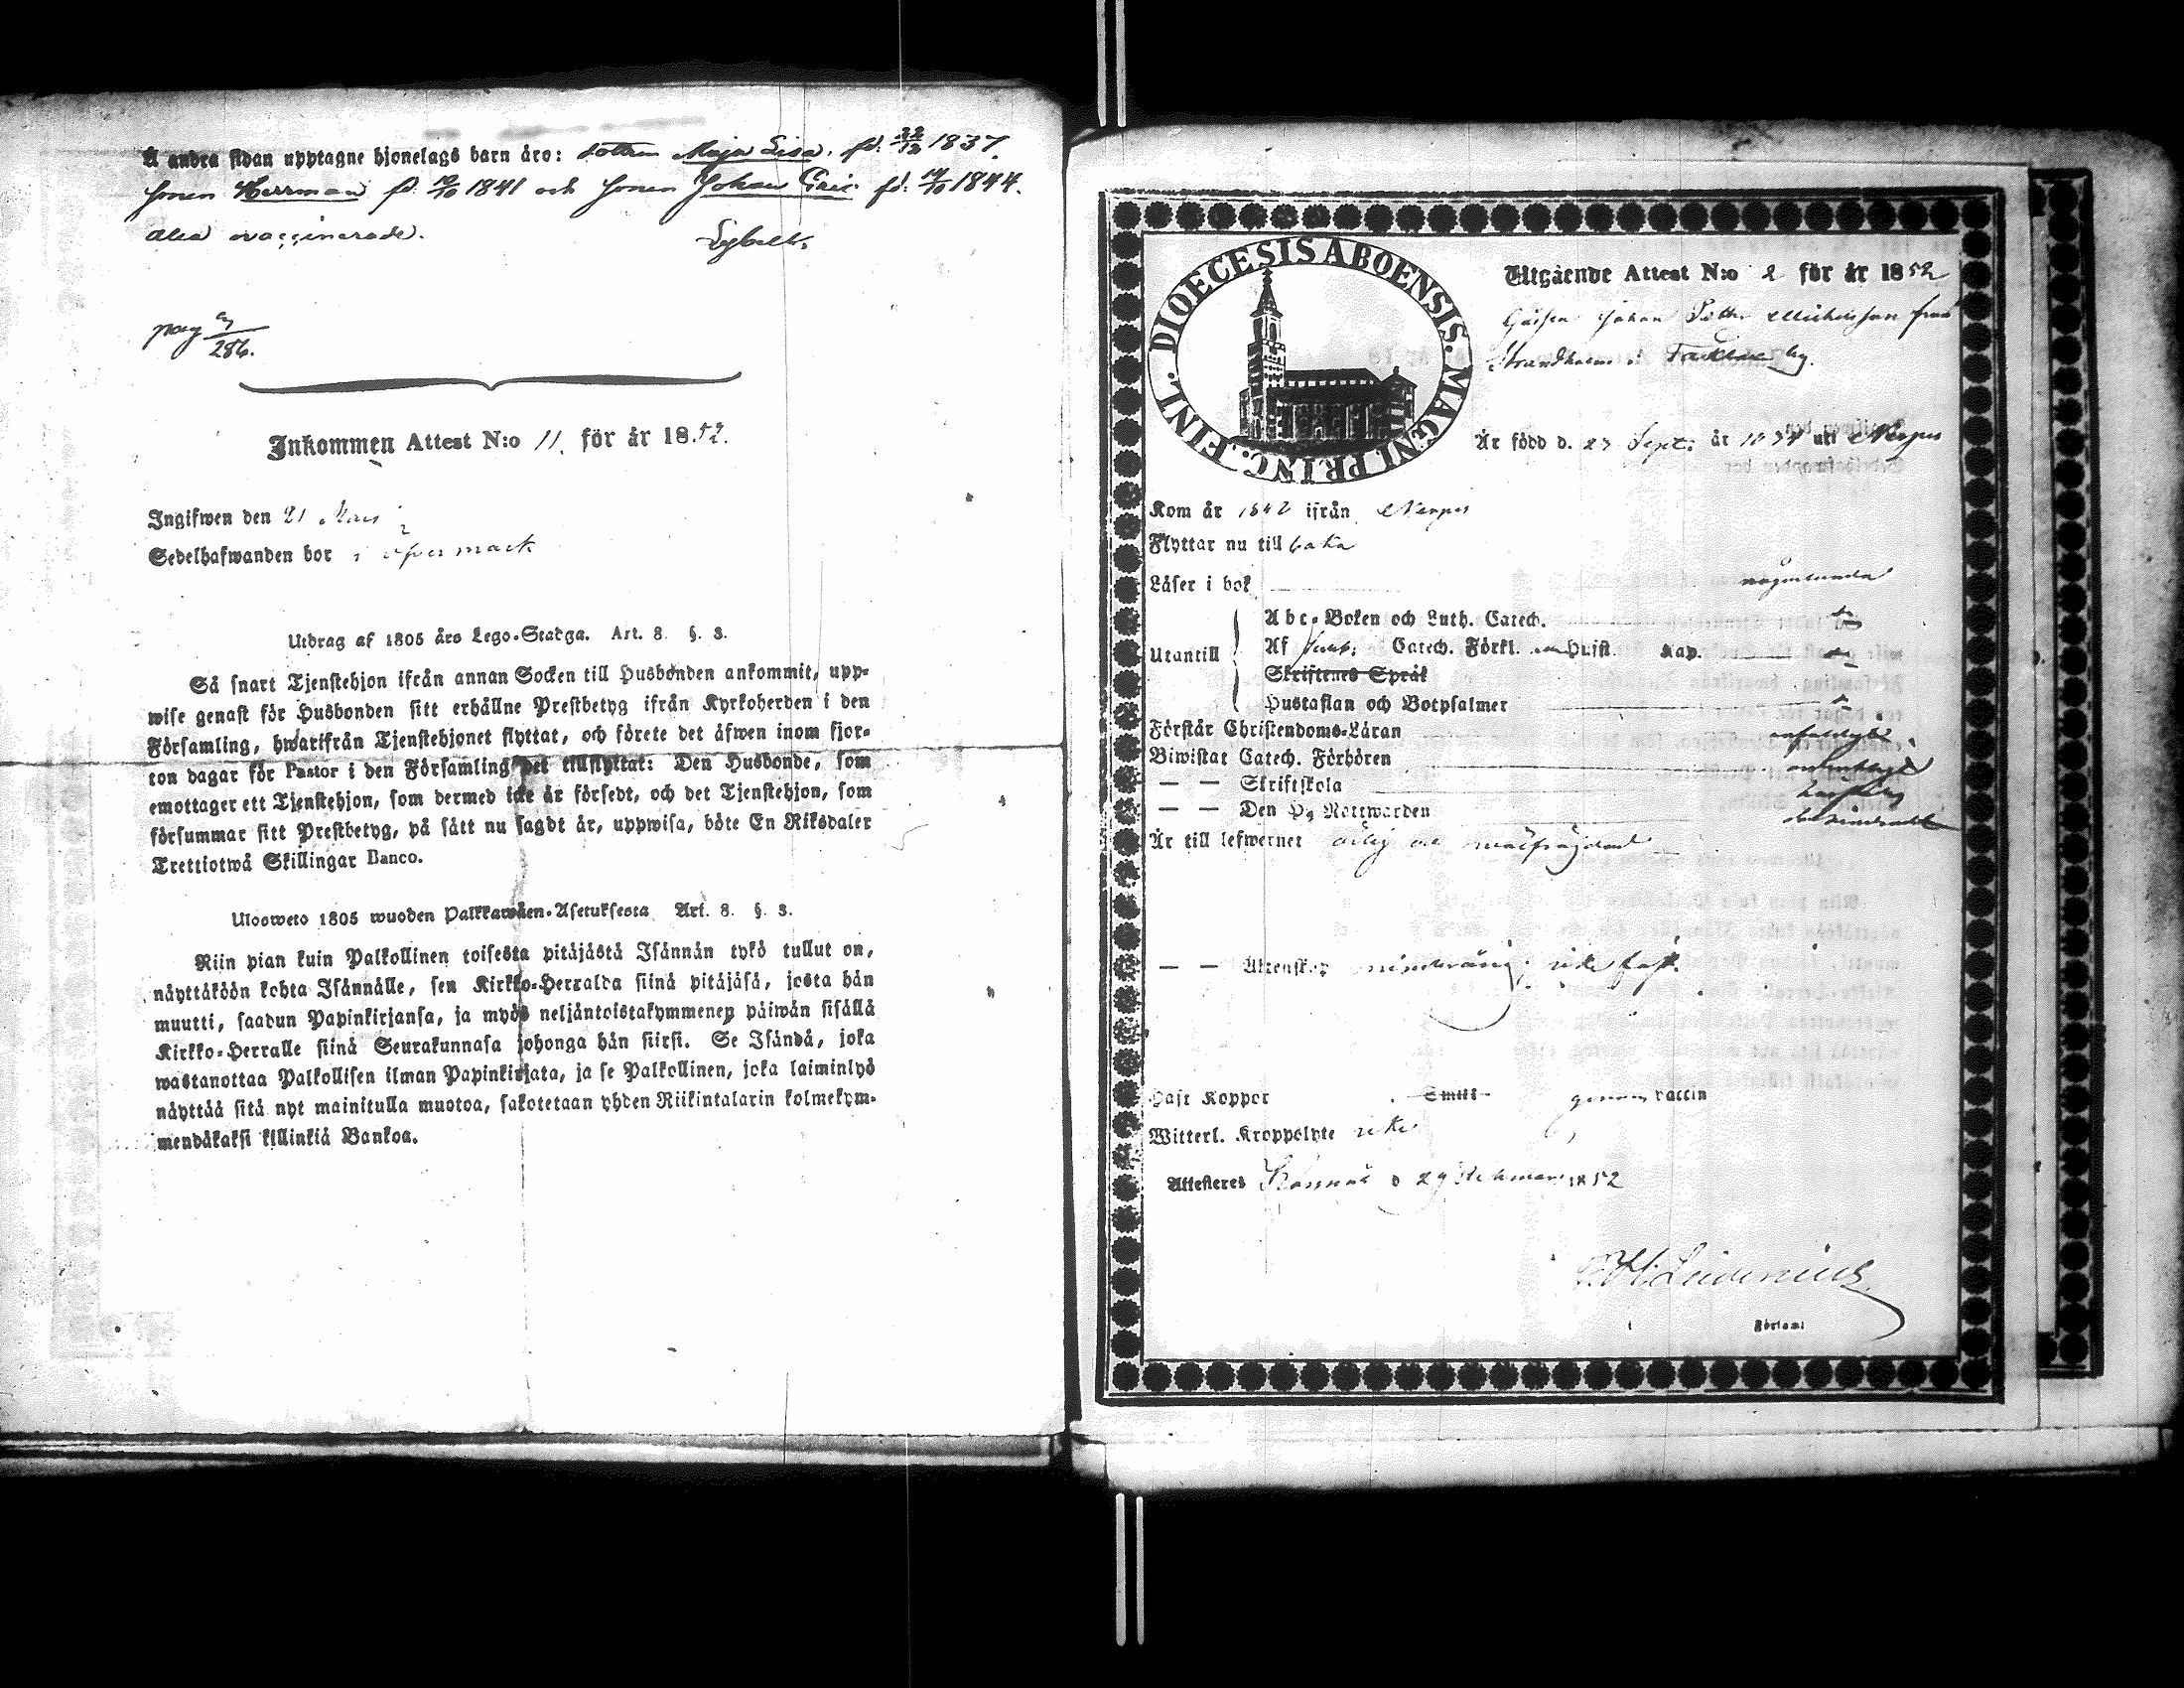 Å andra sidan upptagne hjonelags barn äro: dottren Maja Lisa. fd. 22/12 1837.
sonen Herrman fd. 1841 och sonen Johan Eric fd. 1844.
alla vaccinerade.
pag 286.
Inkommen Attest N:o 11. för år 1852.
Ingifwen den 21 Mars
Sedelhafwanden bor i Öfvermark
Utdrag af 1805 års Lego-Stadga. Art. 8. §. 3.
Så snart Tjenstehjon ifrån annan Socken till Husbonden ankommit, upp-
wise genast för Husbonden sitt erhållne Prestbetyg ifrån Kyrkoherden i den
Församling, hwarifrån Tjenstehjonet flyttat, och förete det äfwen inom fjor-
ton dagar för Pastor i den Församling det tillflyttat: Den Husbonde, som
emottager ett Tjenstehjon, som dermed icke är försedt, och det Tjenstehjon, som
försummar sitt Prestbetyg, på sätt nu sagdt är, uppwisa, böte En Riksdaler
Trettiotwå Skillingar Banco.
Ulosweto 1805 wuoden Palkkawäen-Asetuksesta Art. 8. §. 3.
Niin pian kuin Palkollinen toisesta pitäjästä Isännän tykö tullut on,
näyttäköön kohta Isännälle, sen Kirkko-Herralda siinä pitäjäsä, josta hän
muutti, saadun Papinkirjansa, ja myös neljäntoistakymmenen päiwän sisällä
Kirkko-Herralle siinä Seurakunnasa johonga hän siirsi. Se Isändä, joka
wastanottaa Palkollisen ilman Papinkirjata, ja se Palkollinen, joka laiminlyö
näyttää sitä nyt mainitulla muotoa, sakotetaan yhden Riikintalarin kolmekym-
mendäkaksi killinkiä Bankoa.
DIOECESIS ABOENSIS. MAGNI PRINC. FINL.
Utgående Attest N:o 2 för år 1852
Gossen Johan Petter Michelsson från
Strandholm i by.
Är född d. 27 Sept: år uti Nerpes
Kom år 1842 ifrån Nerpes
Flyttar nu till baka
Läser i bok någorlunda
Utantill
Abc-Boken och Luth. Catech.
Af Catech. Förkl. Hufst. Kap.
Skriftenes Språk
Hustaflan och Botpsalmer
Förstår Christendoms-Läran
Biwistat Catech. Förhören
— — Skriftskola
— — Den Hg Nattwarden
Är till lefwernet ärlig och wälfrägdad
— — Äktenskap minderårig; icke fäst.
Haft Koppor Smitt genom vaccin
Witterl. Kroppslyte icke
Attesteras d 29 1852
Församl